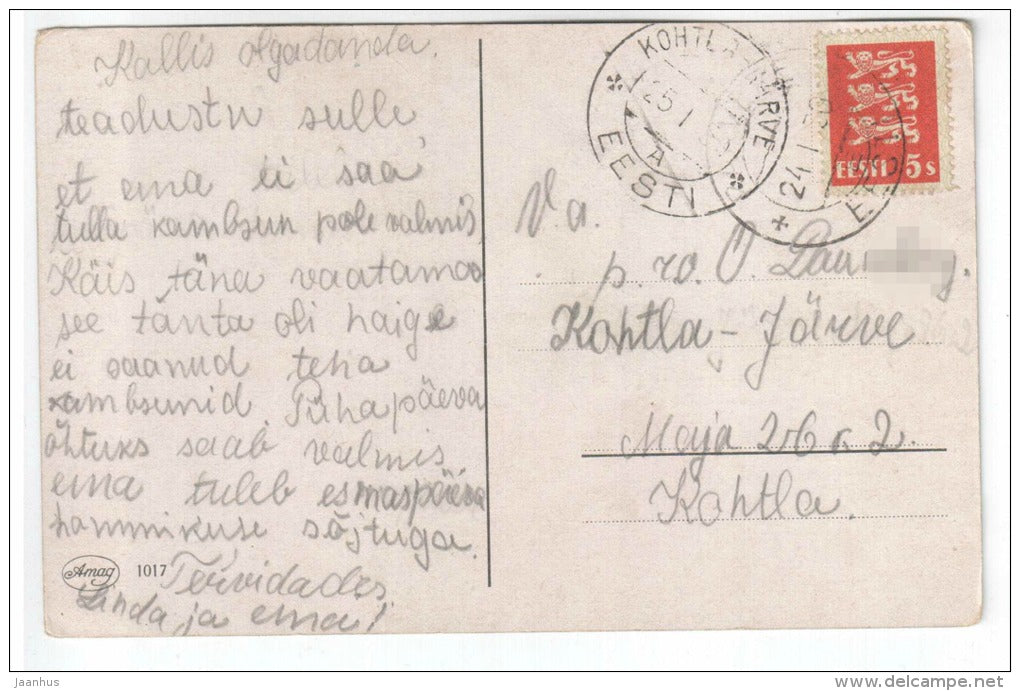 Kallis Olgadanda.
teadustu sulle,
et ema ei saa
tulla kambsun pole valmis
Käis täna vaatamas
see tanta oli haige
ei saanud teha
kambsunid Pühapäeva
õhtuks saab valmis
ema tuleb esmaspäeva
hommikuse sõjtuga.
Tervidades
Linda ja ema!
Amag 1017
KOHTLA-JÄRVE
25 I
A
EESTI
24 I
EESTI 5 s
V. a.
p. ro. O.
Kohtla-Järve
Maja 26 k. 2.
Kohtla.
jaanhus
www.delcampe.net